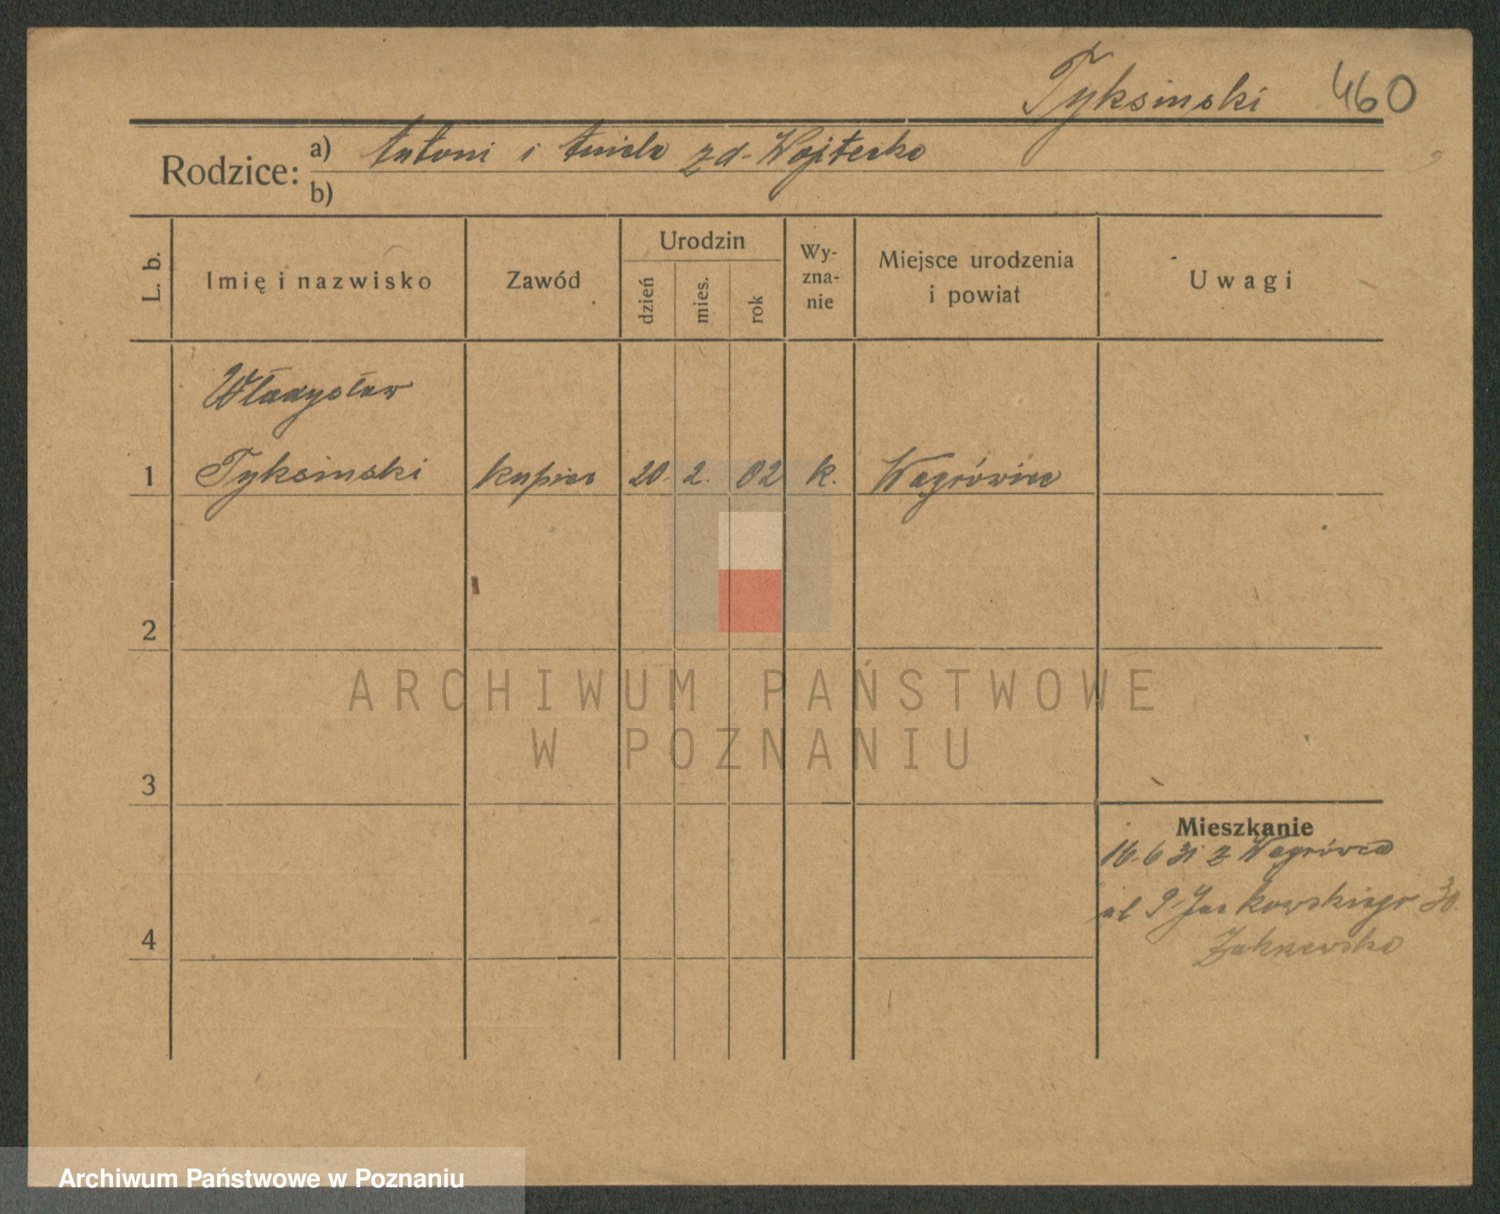 Tyksinski 460
Rodzice: a) Antoni i Aniela zd. Wojtecka
b)
L. b.
Imię i nazwisko
Zawód
Urodzin
dzień
mies.
rok
Wy-
zna-
nie
Miejsce urodzenia
i powiat
Uwagi
Władysław
1 Tyksinski kupiec 20. 2. 02 k. Wągrówiec
2
3
4
Mieszkanie
16.6 31 z Wągrówca
ul P. Jackowskiego 30.
ARCHIWUM PAŃSTWOWE
W POZNANIU
Archiwum Państwowe w Poznaniu